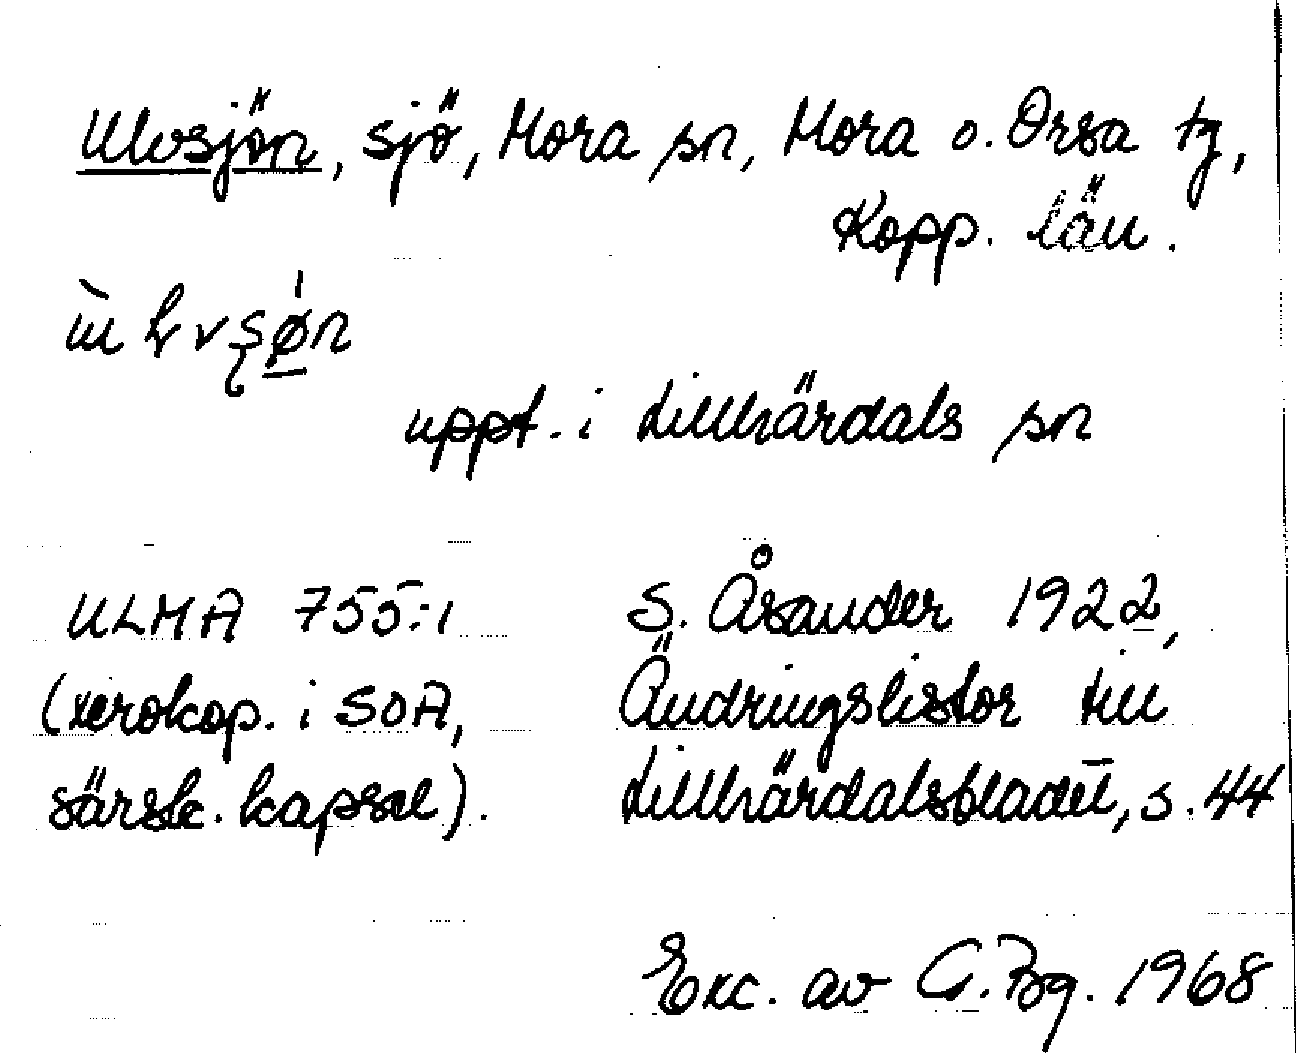 Ulvsjön, sjö, Mora sn, Mora o. Orsa tg,
Kopp. län.
uppt. i Lillhärdals sn
ULMA 755:1
(xerokop. i SOA,
särsk. kapsel).
S. Åsander 1922,
Ändringslistor till
Lillhärdalsbladet, s. 44
Exc. av G. Bg. 1968